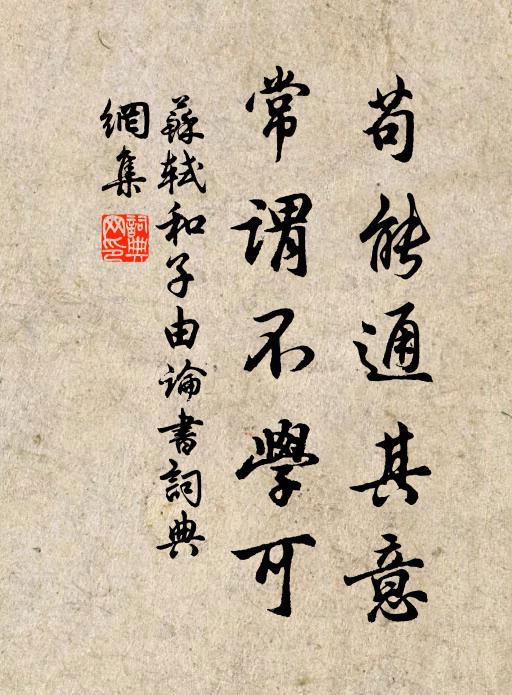 苟能通其意
常謂不學可
蘇軾和子由論書詞典
網集
詞典
网印